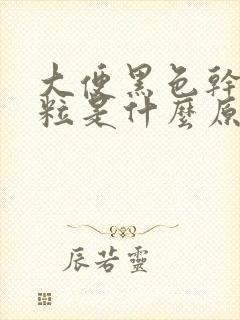 大便黑色幹
粒是什麼原
辰若靈